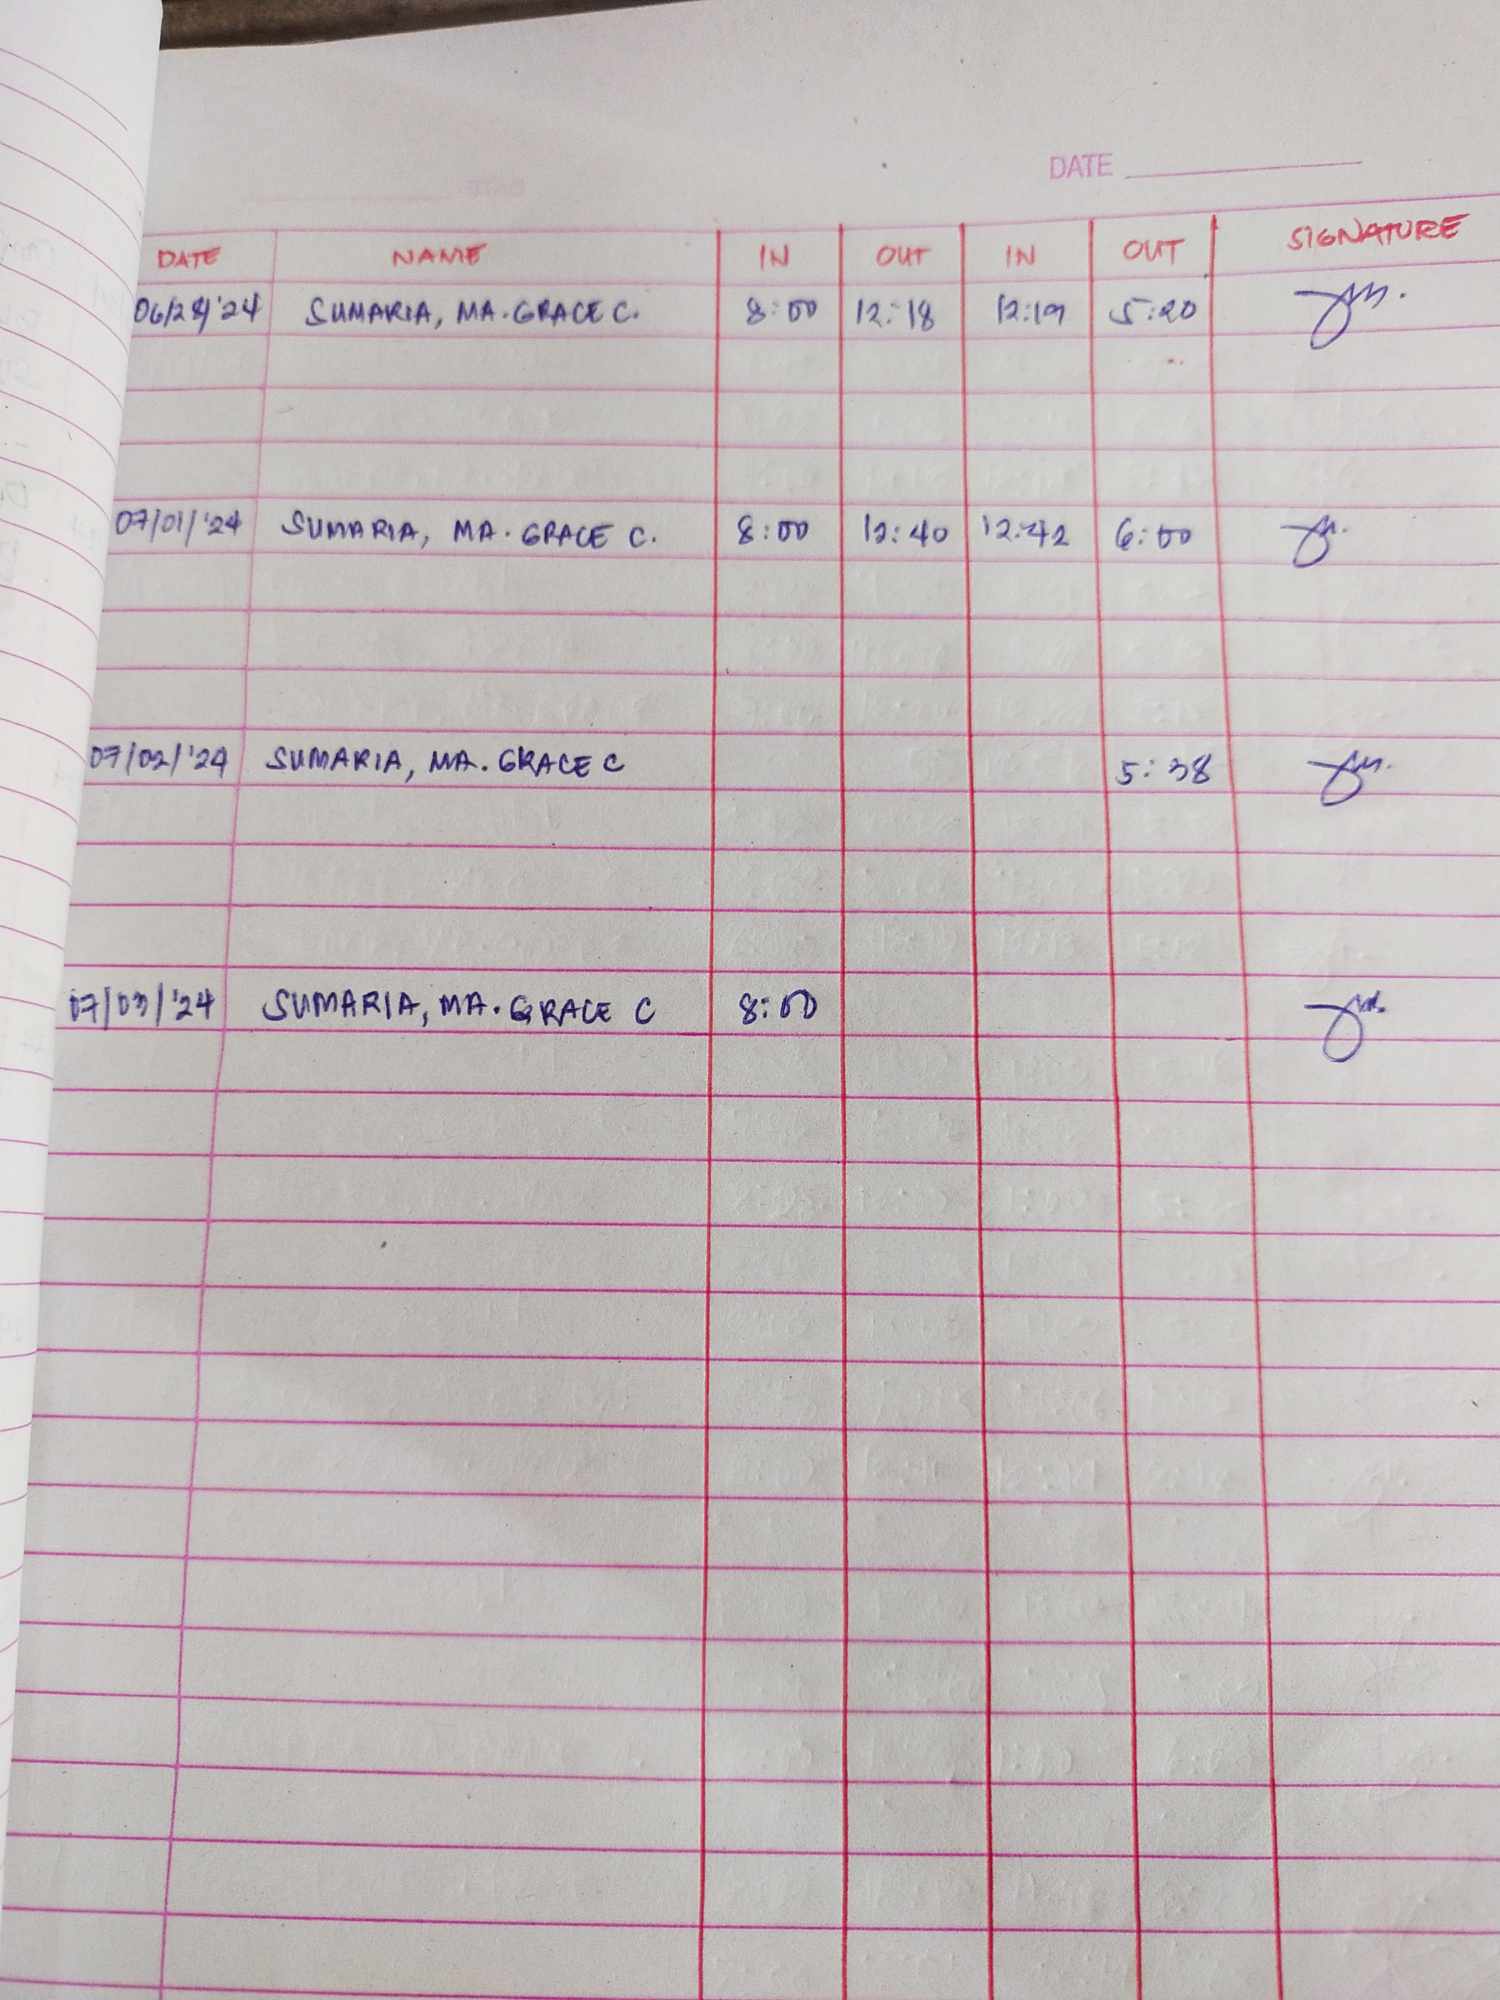 DATE
DATE NAME IN OUT IN OUT SIGNATURE
06/28/'24 SUMARIA, MA. GRACE C. 8:00 12:18 12:19 5:20
07/01/'24 SUMARIA, MA. GRACE C. 8:00 12:40 12:42 6:00
07/02/'24 SUMARIA, MA. GRACE C 5:38
07/03/'24 SUMARIA, MA. GRACE C 8:00